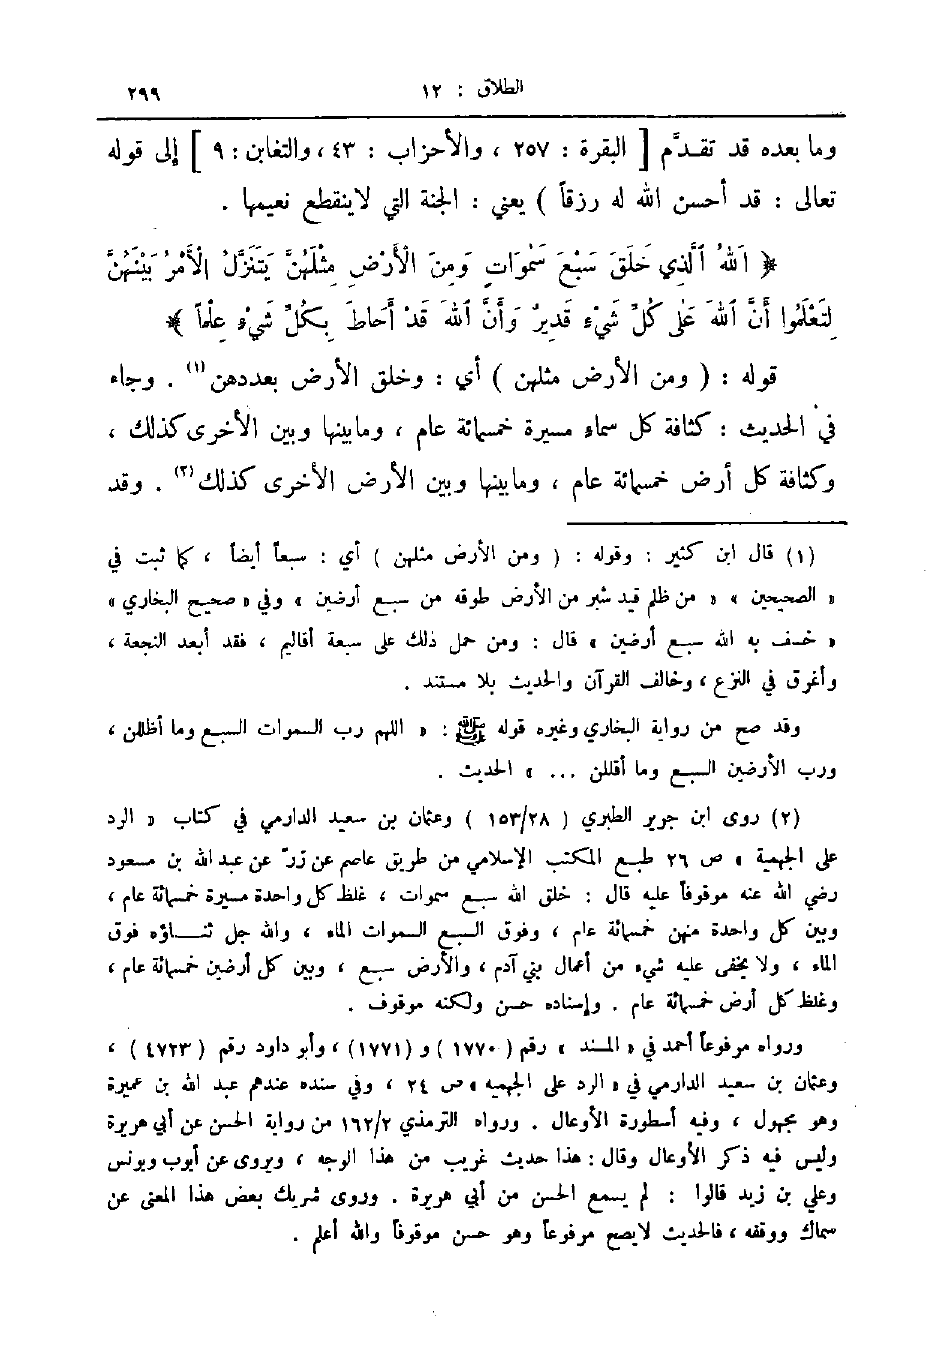 الطلاق : ١٢
٢٩٩
وما بعده قد تقـدَّم [ البقرة : ٢٥٧ ، والأحزاب : ٤٣ ، والتغابن : ٩ ] إلى قوله
تعالى : قد أحسن الله له رزقاً ) يعني : الجنة التي لاينقطع نعيمها .
﴿ اَللهُ ٱلَّذِي خَلَقَ سَبْعَ سَمٰوَاتٍ وَمِنَ الْأَرْضِ مِثْلَهُنَّ يَتَنَزَّلُ الْأَمْرُ بَيْنَهُنَّ
لِتَعْلَمُوا أَنَّ ٱللهَ عَلٰى كُلِّ شَيْءٍ قَدِيرٌ وَأَنَّ ٱللهَ قَدْ أَحَاطَ بِكُلِّ شَيْءٍ عِلْماً ﴾
قوله : ( ومن الأرض مثلهن ) أي : وخلق الأرض بعددهن (١) . وجاء
في الحديث : كثافة كل سماء مسيرة خمسمائة عام ، ومابينها وبين الأخرى كذلك ،
وكثافة كل أرض خمسمائة عام ، ومابينها وبين الأرض الأخرى كذلك (٢) . وقد
(١) قال ابن كثير : وقوله : ( ومن الأرض مثلهن ) أي : سبعاً أيضاً ، كما ثبت في
« الصحيحين » « من ظلم قيد شبر من الأرض طوقه من سبع أرضين » وفي « صحيح البخاري »
« خسف به الله سبع أرضين » قال : ومن حمل ذلك على سبعة أقاليم ، فقد أبعد النجعة ،
وأغرق في النزع ، وخالف القرآن والحديث بلا مستند .
وقد صح من رواية البخاري وغيره قوله ﷺ : « اللهم رب السموات السبع وما أظللن ،
ورب الأرضين السبع وما أقللن ... » الحديث .
(٢) روى ابن جرير الطبري ( ١٥٣/٢٨ ) وعثمان بن سعيد الدارمي في كتاب « الرد
على الجهمية » ص ٢٦ طبع المكتب الإسلامي من طريق عاصم عن زرّ عن عبد الله بن مسعود
رضي الله عنه موقوفاً عليه قال : خلق الله سبع سموات ، غلظ كل واحدة مسيرة خمسمائة عام ،
وبين كل واحدة منهن خمسمائة عام ، وفوق السبع السموات الماء ، والله جل ثنـــاؤه فوق
الماء ، ولا يخفى عليه شيء من أعمال بني آدم ، والأرض سبع ، وبين كل أرضين خمسمائة عام ،
وغلظ كل أرض خمسمائة عام . وإسناده حسن ولكنه موقوف .
ورواه مرفوعاً أحمد في « المسند » رقم ( ١٧٧٠ ) و (١٧٧١) ، وأبو داود رقم ( ٤٧٢٣ ) ،
وعثمان بن سعيد الدارمي في « الرد على الجهميه » ص ٢٤ ، وفي سنده عندهم عبد الله بن عميرة
وهو مجهول ، وفيه أسطورة الأوعال . ورواه الترمذي ١٦٢/٢ من رواية الحسن عن أبي هريرة
وليس فيه ذكر الأوعال وقال : هذا حديث غريب من هذا الوجه ، ويروى عن أيوب ويونس
وعلي بن زيد قالوا : لم يسمع الحسن من أبي هريرة . وروى شريك بعض هذا المعنى عن
سماك ووقفه ، فالحديث لايصح مرفوعاً وهو حسن موقوفاً والله أعلم .